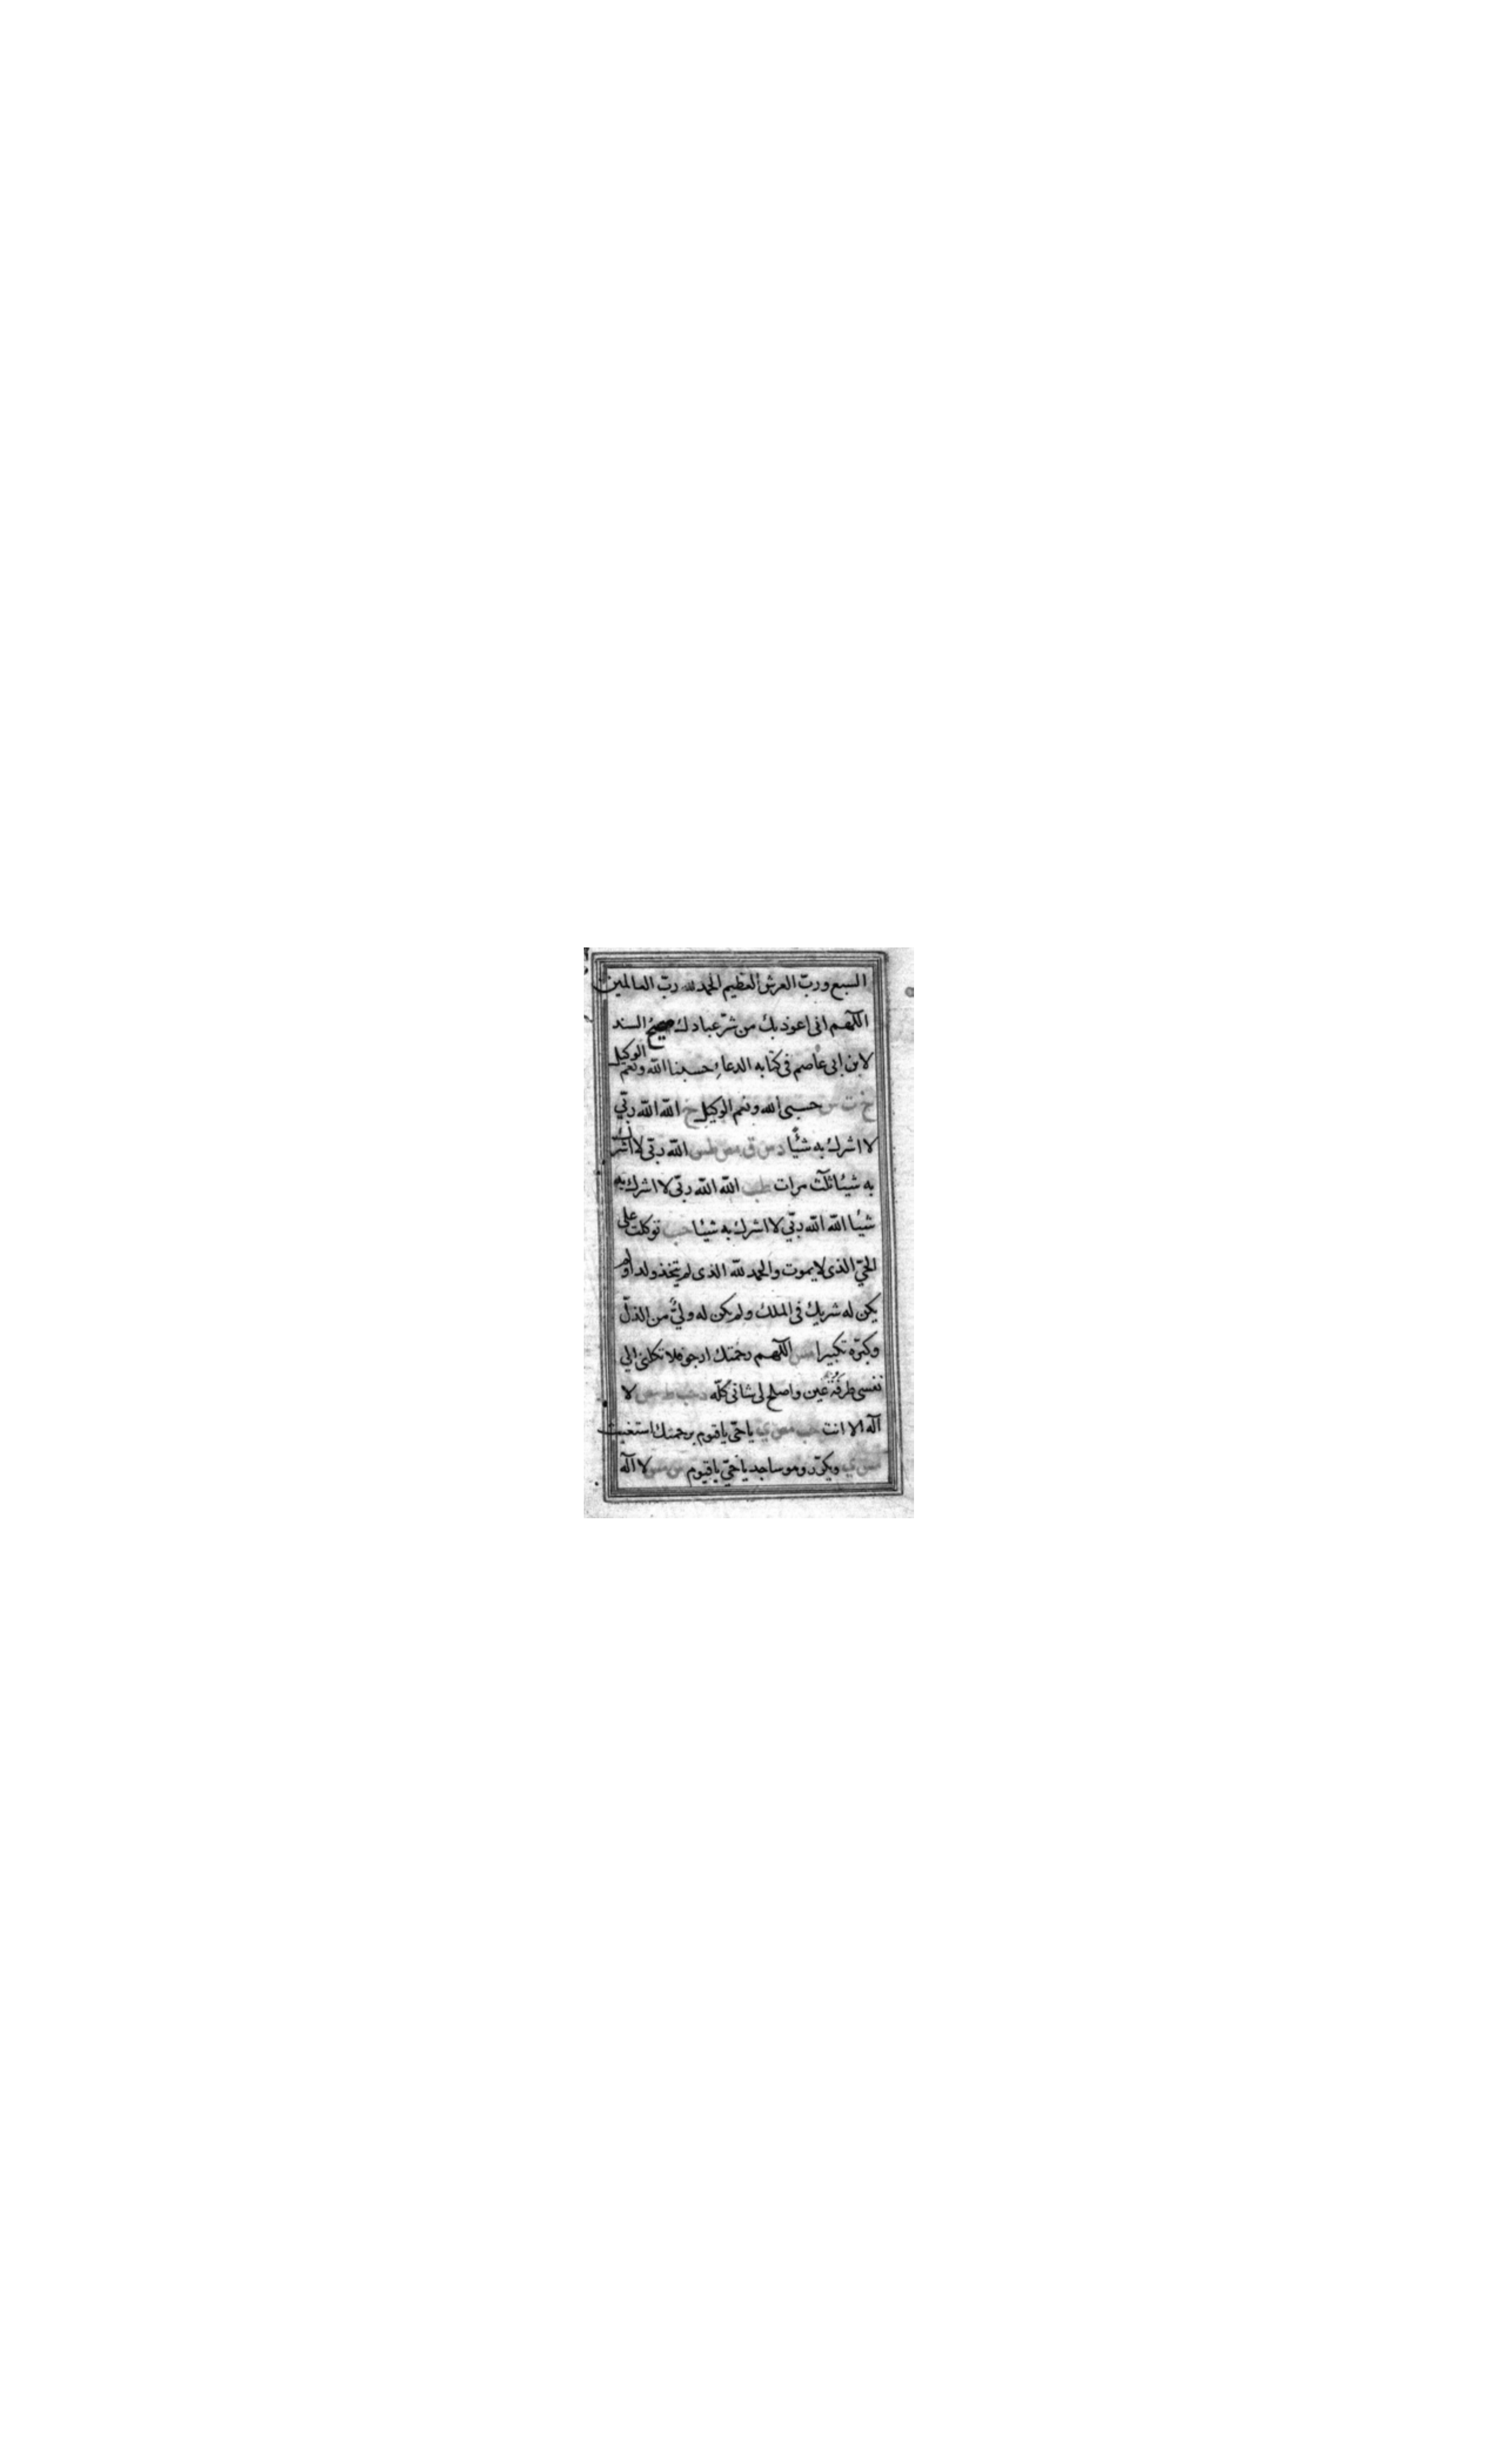 السبع ورب العرش العظيم الحمد لله رب العالمين
اللهم انى اعوذ بك من شر عبادك صحيح السند
لابن ابى عاصم فى كتابه الدعاء حسبنا الله ونعم الوكيل
خ ت س حسبى الله ونعم الوكيل خ الله الله ربّي
لا اشرك به شيئا د س ق مص طس الله ربّى لا اشرك
به شيئا ثلث مرات طب الله الله ربّى لا اشرك به
شيئا الله الله ربّي لا اشرك به شيئا حب توكلت على
الحيّ الذى لا يموت والحمد لله الذى لم يتخذ ولدا ولم
يكن له شريك فى الملك ولم يكن له وليّ من الذلّ
وكبّره تكبيرا مس اللهم رحمتك ارجو فلا تكلنى الي
نفسى طرفة عين واصلح لى شانى كلّه د حب ط مص لا
اله الا انت حب مص ى يا حيّ يا قيوم برحمتك استغيث
مس ى ويكرّر وهو ساجد يا حيّ يا قيوم س مس لا اله